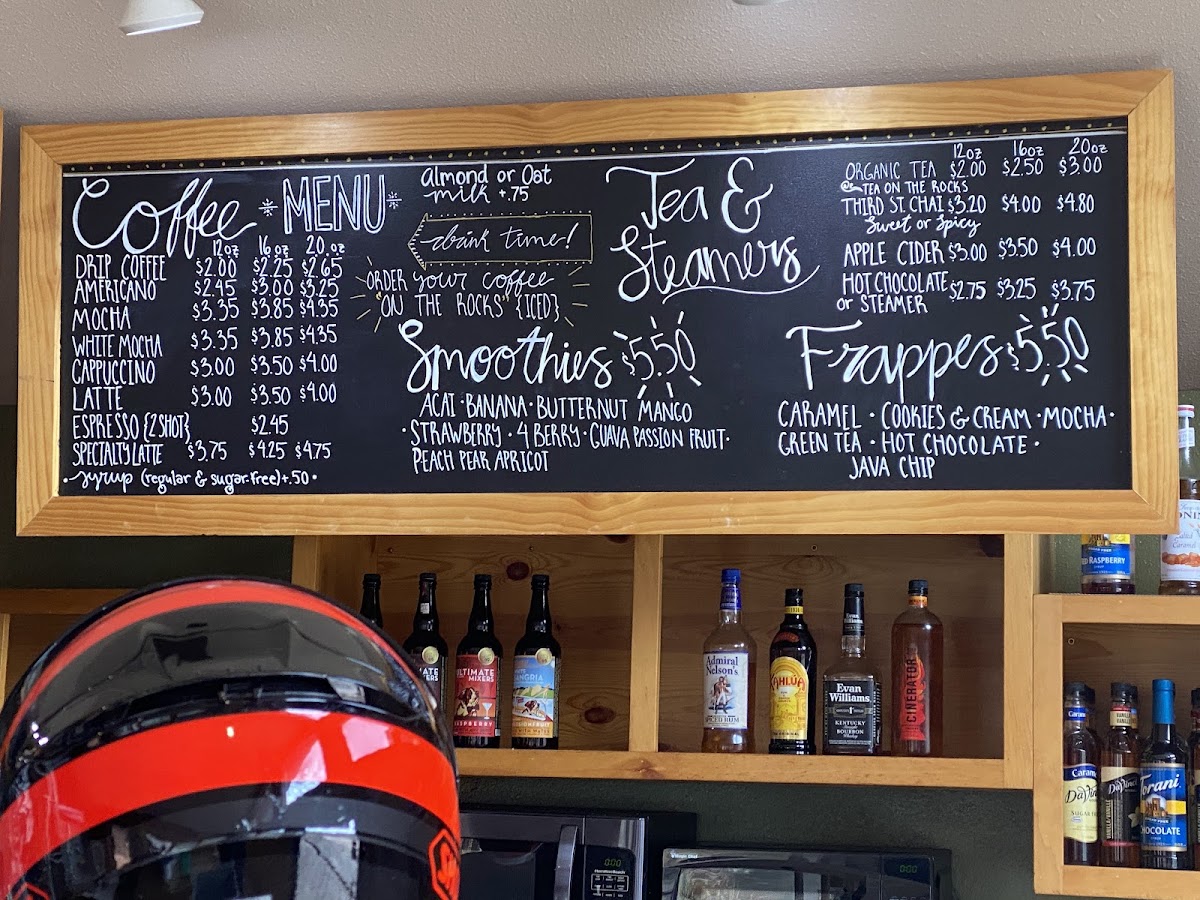 Coffee MENU
12oz 16oz 20oz
DRIP COFFEE $2.00 $2.25 $2.65
AMERICANO $2.45 $3.00 $3.25
MOCHA $3.35 $3.85 $4.35
WHITE MOCHA $3.35 $3.85 $4.35
CAPPUCCINO $3.00 $3.50 $4.00
LATTE $3.00 $3.50 $4.00
ESPRESSO {2 SHOT} $2.45
SPECIALTY LATTE $3.75 $4.25 $4.75
• syrup (regular & sugar-free) +.50 •
Almond or Oat
milk +.75
drink time!
ORDER your coffee
"ON THE ROCKS" {ICED}
Smoothies $5.50
ACAI • BANANA • BUTTERNUT MANGO
• STRAWBERRY • 4 BERRY • GUAVA PASSION FRUIT •
PEACH PEAR APRICOT
Tea &
Steamers
12oz 16oz 20oz
ORGANIC TEA $2.00 $2.50 $3.00
TEA ON THE ROCKS
THIRD ST. CHAI $3.20 $4.00 $4.80
Sweet or Spicy
APPLE CIDER $3.00 $3.50 $4.00
HOT CHOCOLATE
or STEAMER $2.75 $3.25 $3.75
Frappes $5.50
CARAMEL • COOKIES & CREAM • MOCHA •
GREEN TEA • HOT CHOCOLATE •
JAVA CHIP
ULTIMATE
MIXERS
RASPBERRY
Admiral
Nelson's
SPICED RUM
KAHLÚA
Evan Williams
Evan
Williams
KENTUCKY
BOURBON
CINERATOR
RASPBERRY
Caramel
DaVinci
SUGAR FREE
VANILLA
DaVinci
Torani
CHOCOLATE
0:00
0:00